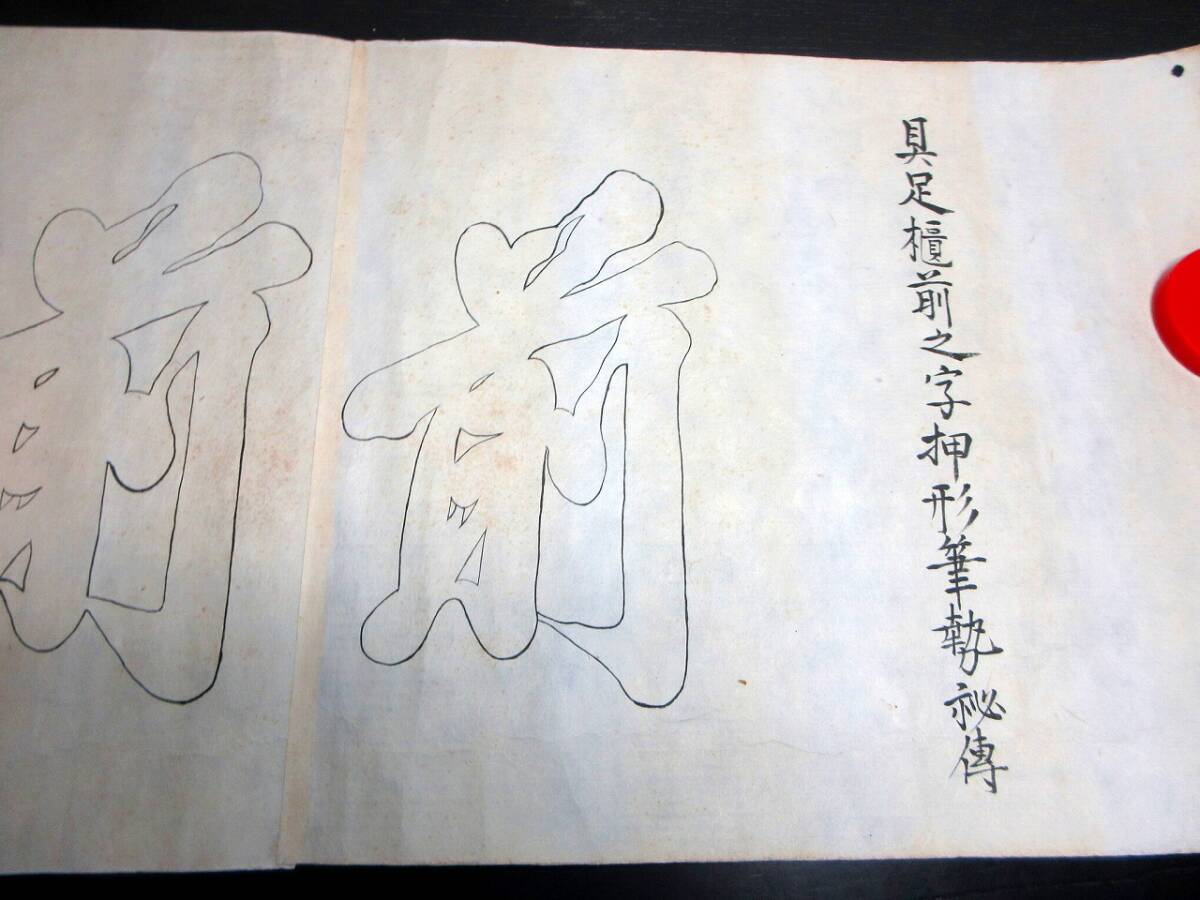 具足櫃前之字押形筆勢祕傳
前
前